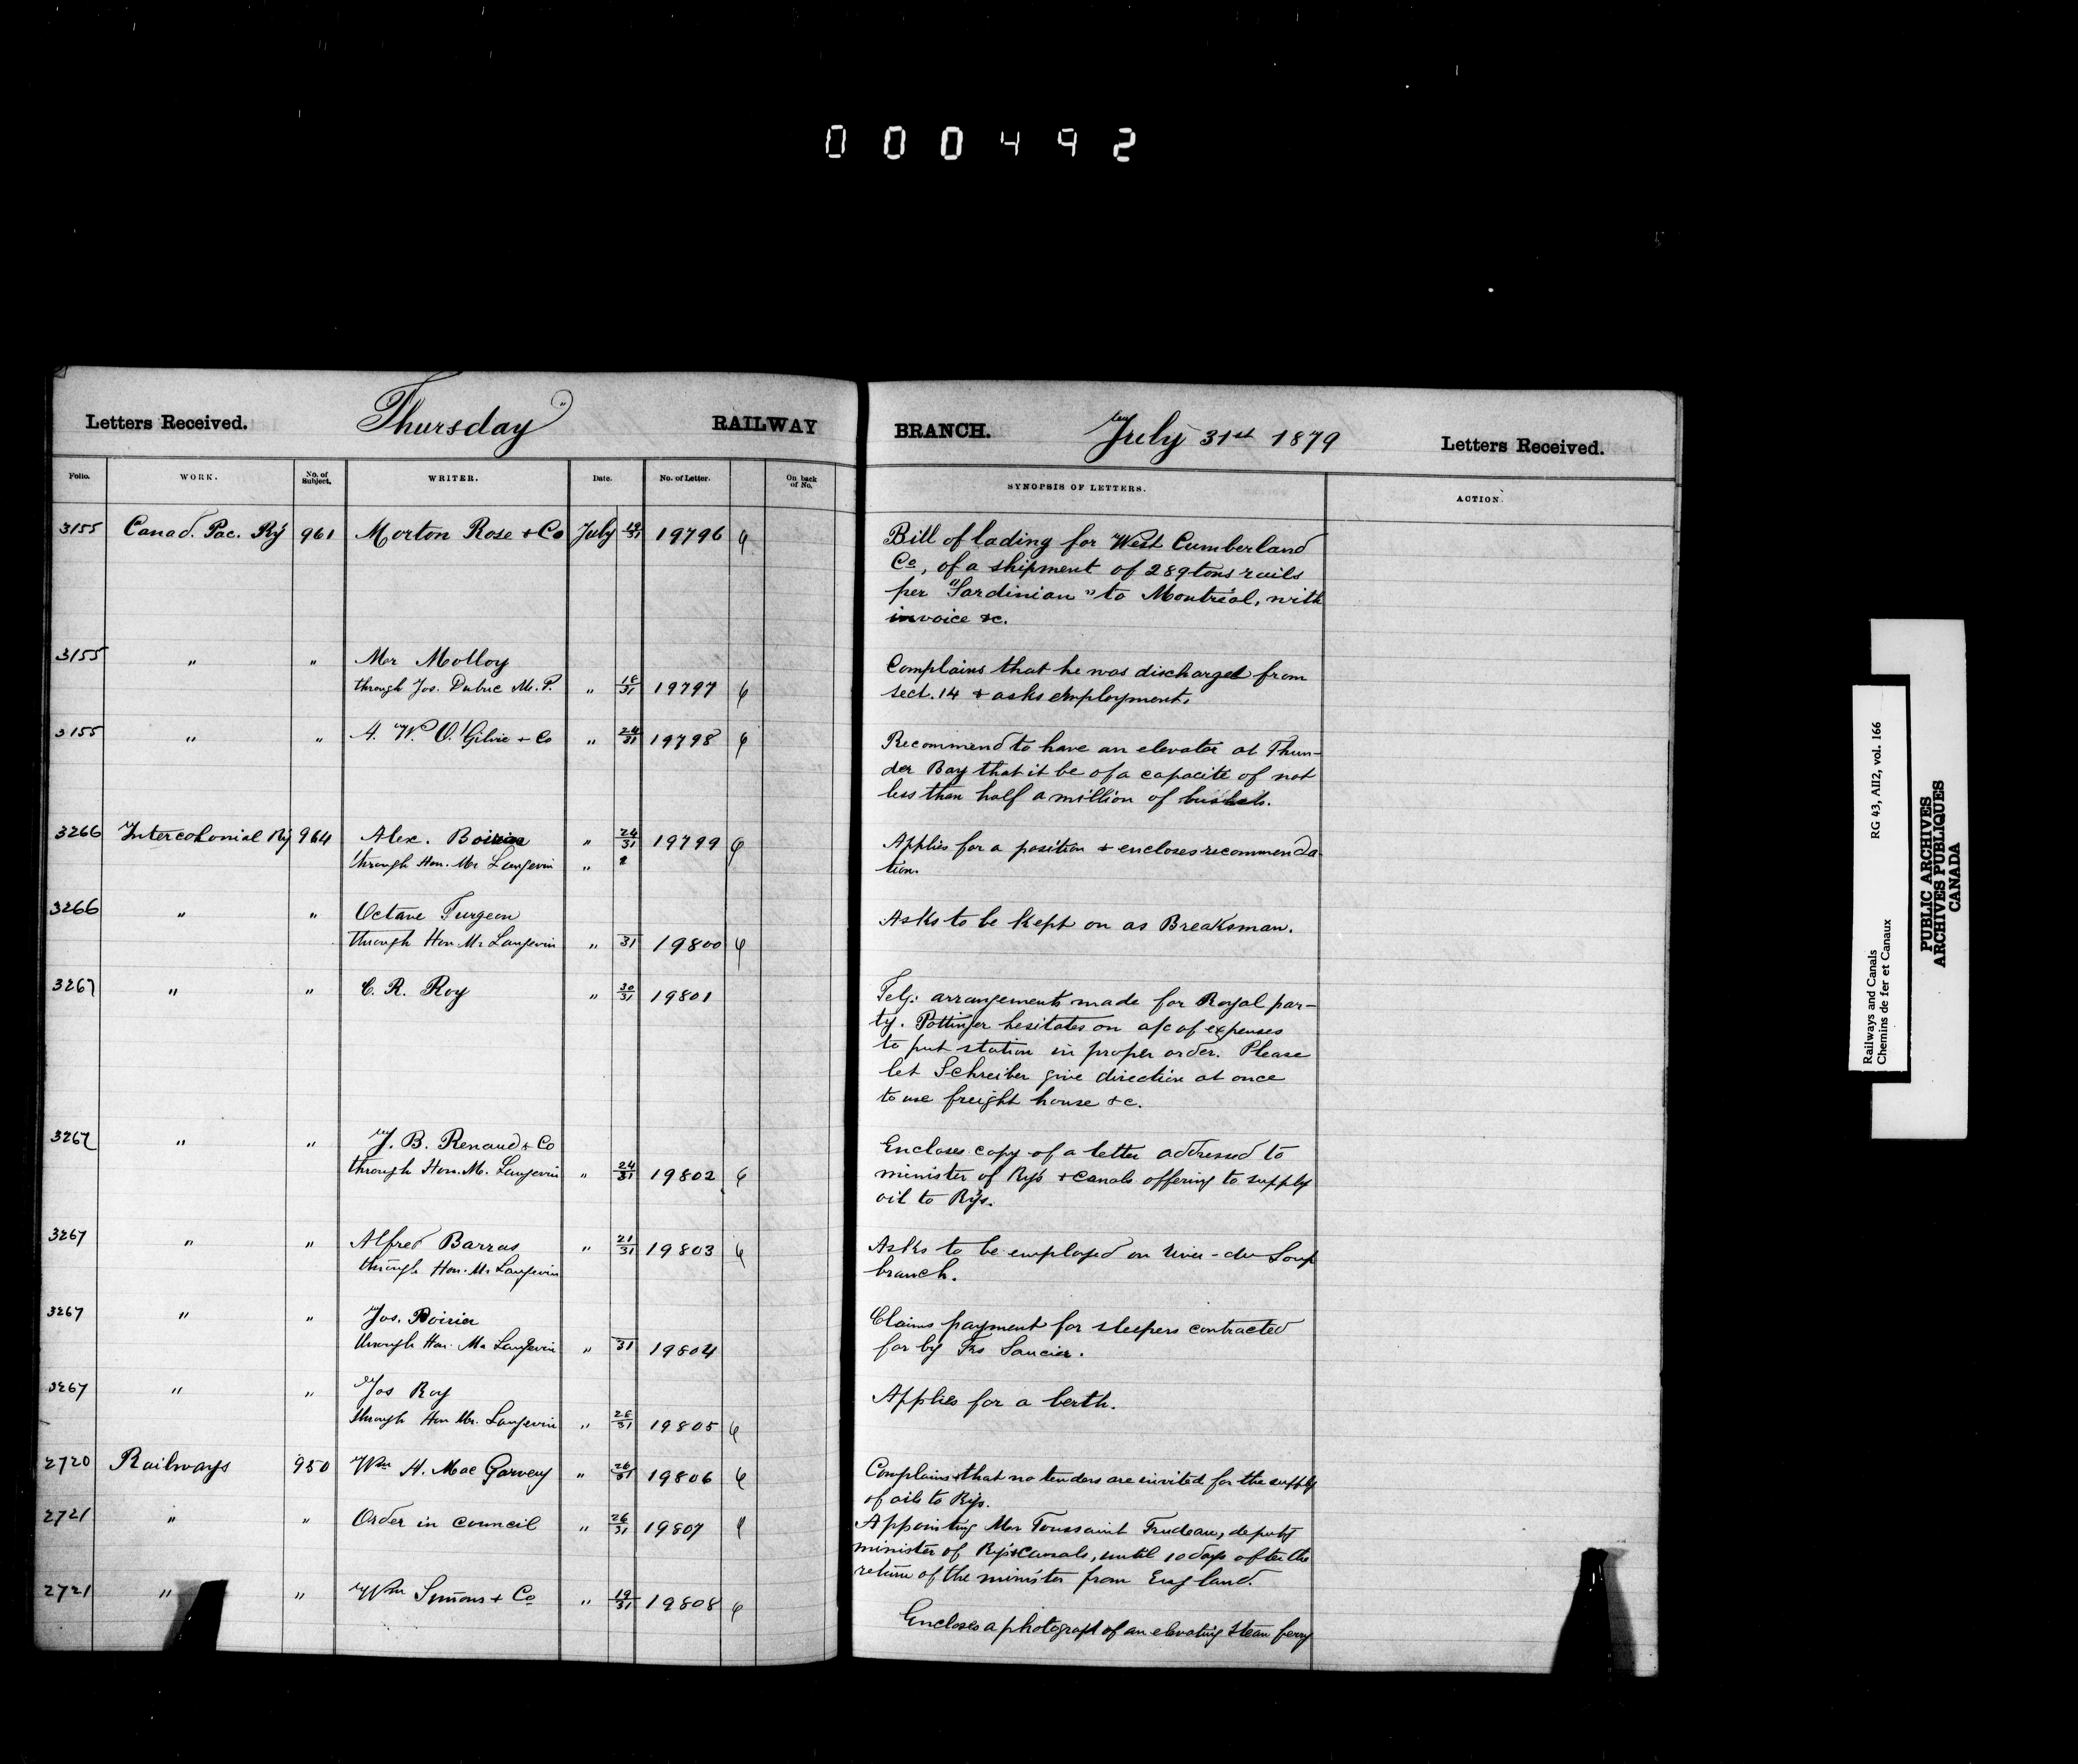 000492
Letters Received. Thursday RAILWAY BRANCH. July 31st 1879 Letters Received.
Folio. WORK. No. of Subject. WRITER. Date. No. of Letter. On back of No. SYNOPSIS OF LETTERS. ACTION.
3155 Canad. Pac. Ry 961 Morton Rose + Co July 19/31 19796 Bill of lading for West Cumberland
Co, of a shipment of 289 tons rails
per "Sardinian" to Montréal, with
invoice &c.
3155 " " Mr Molloy Complains that he was discharged from
through Jos. Dubuc M.P. " 18/31 19797 sect. 14 + asks employment.
3155 " " A. W. O'Gilvie + Co " 24/31 19798 Recommend to have an elevator at Thun-
der Bay that it be of a capacite of not
less than half a million of bushels.
3266 Intercolonial Ry 964 Alex. " 24/31 19799 Applies for a position + encloses recommenda-
through Hon. Mr Langevin " tion.
3266 " " Octave Turgeon Asks to be kept on as Breaksman.
through Hon. Mr Langevin " 31 19800
3267 " " C. R. Roy " 30/31 19801 Telg: arrangements made for Royal par-
ty. Pottinger hesitates on a/c of expenses
to put station in proper order. Please
let Schreiber give direction at once
to use freight house &c.
3267 " " J. B. Renaud + Co Encloses copy of a letter addressed to
through Hon. M. Langevin " 24/31 19802 minister of Rys + Canals offering to supply
oil to Rys.
3267 " " Alfred Barras " 21/31 19803 Asks to be employed on River-du Loup
through Hon. Mr Langevin branch.
3267 " " Jos. Poirier Claims payment for sleepers contracted
through Hon. Mr Langevin " 31 19804 for by Frs Saucier.
3267 " " Jos Roy Applies for a berth.
through Hon Mr. Langevin " 26/31 19805
2720 Railways 950 Wm H. Mac Garvey " 26/31 19806 Complains that no tenders are invited for the supply
of oils to Rys.
2721 " " Order in council " 26/31 19807 Appointing Mr Toussaint Trudeau, deputy
minister of Rys + Canals, until 10 days after the
return of the minister from England.
2721 " " Wm Simons + Co " 19/31 19808 Encloses a photograph of an elevating steam ferry
Railways and Canals RG 43, AII2, vol. 166
Chemins de fer et Canaux
PUBLIC ARCHIVES
ARCHIVES PUBLIQUES
CANADA